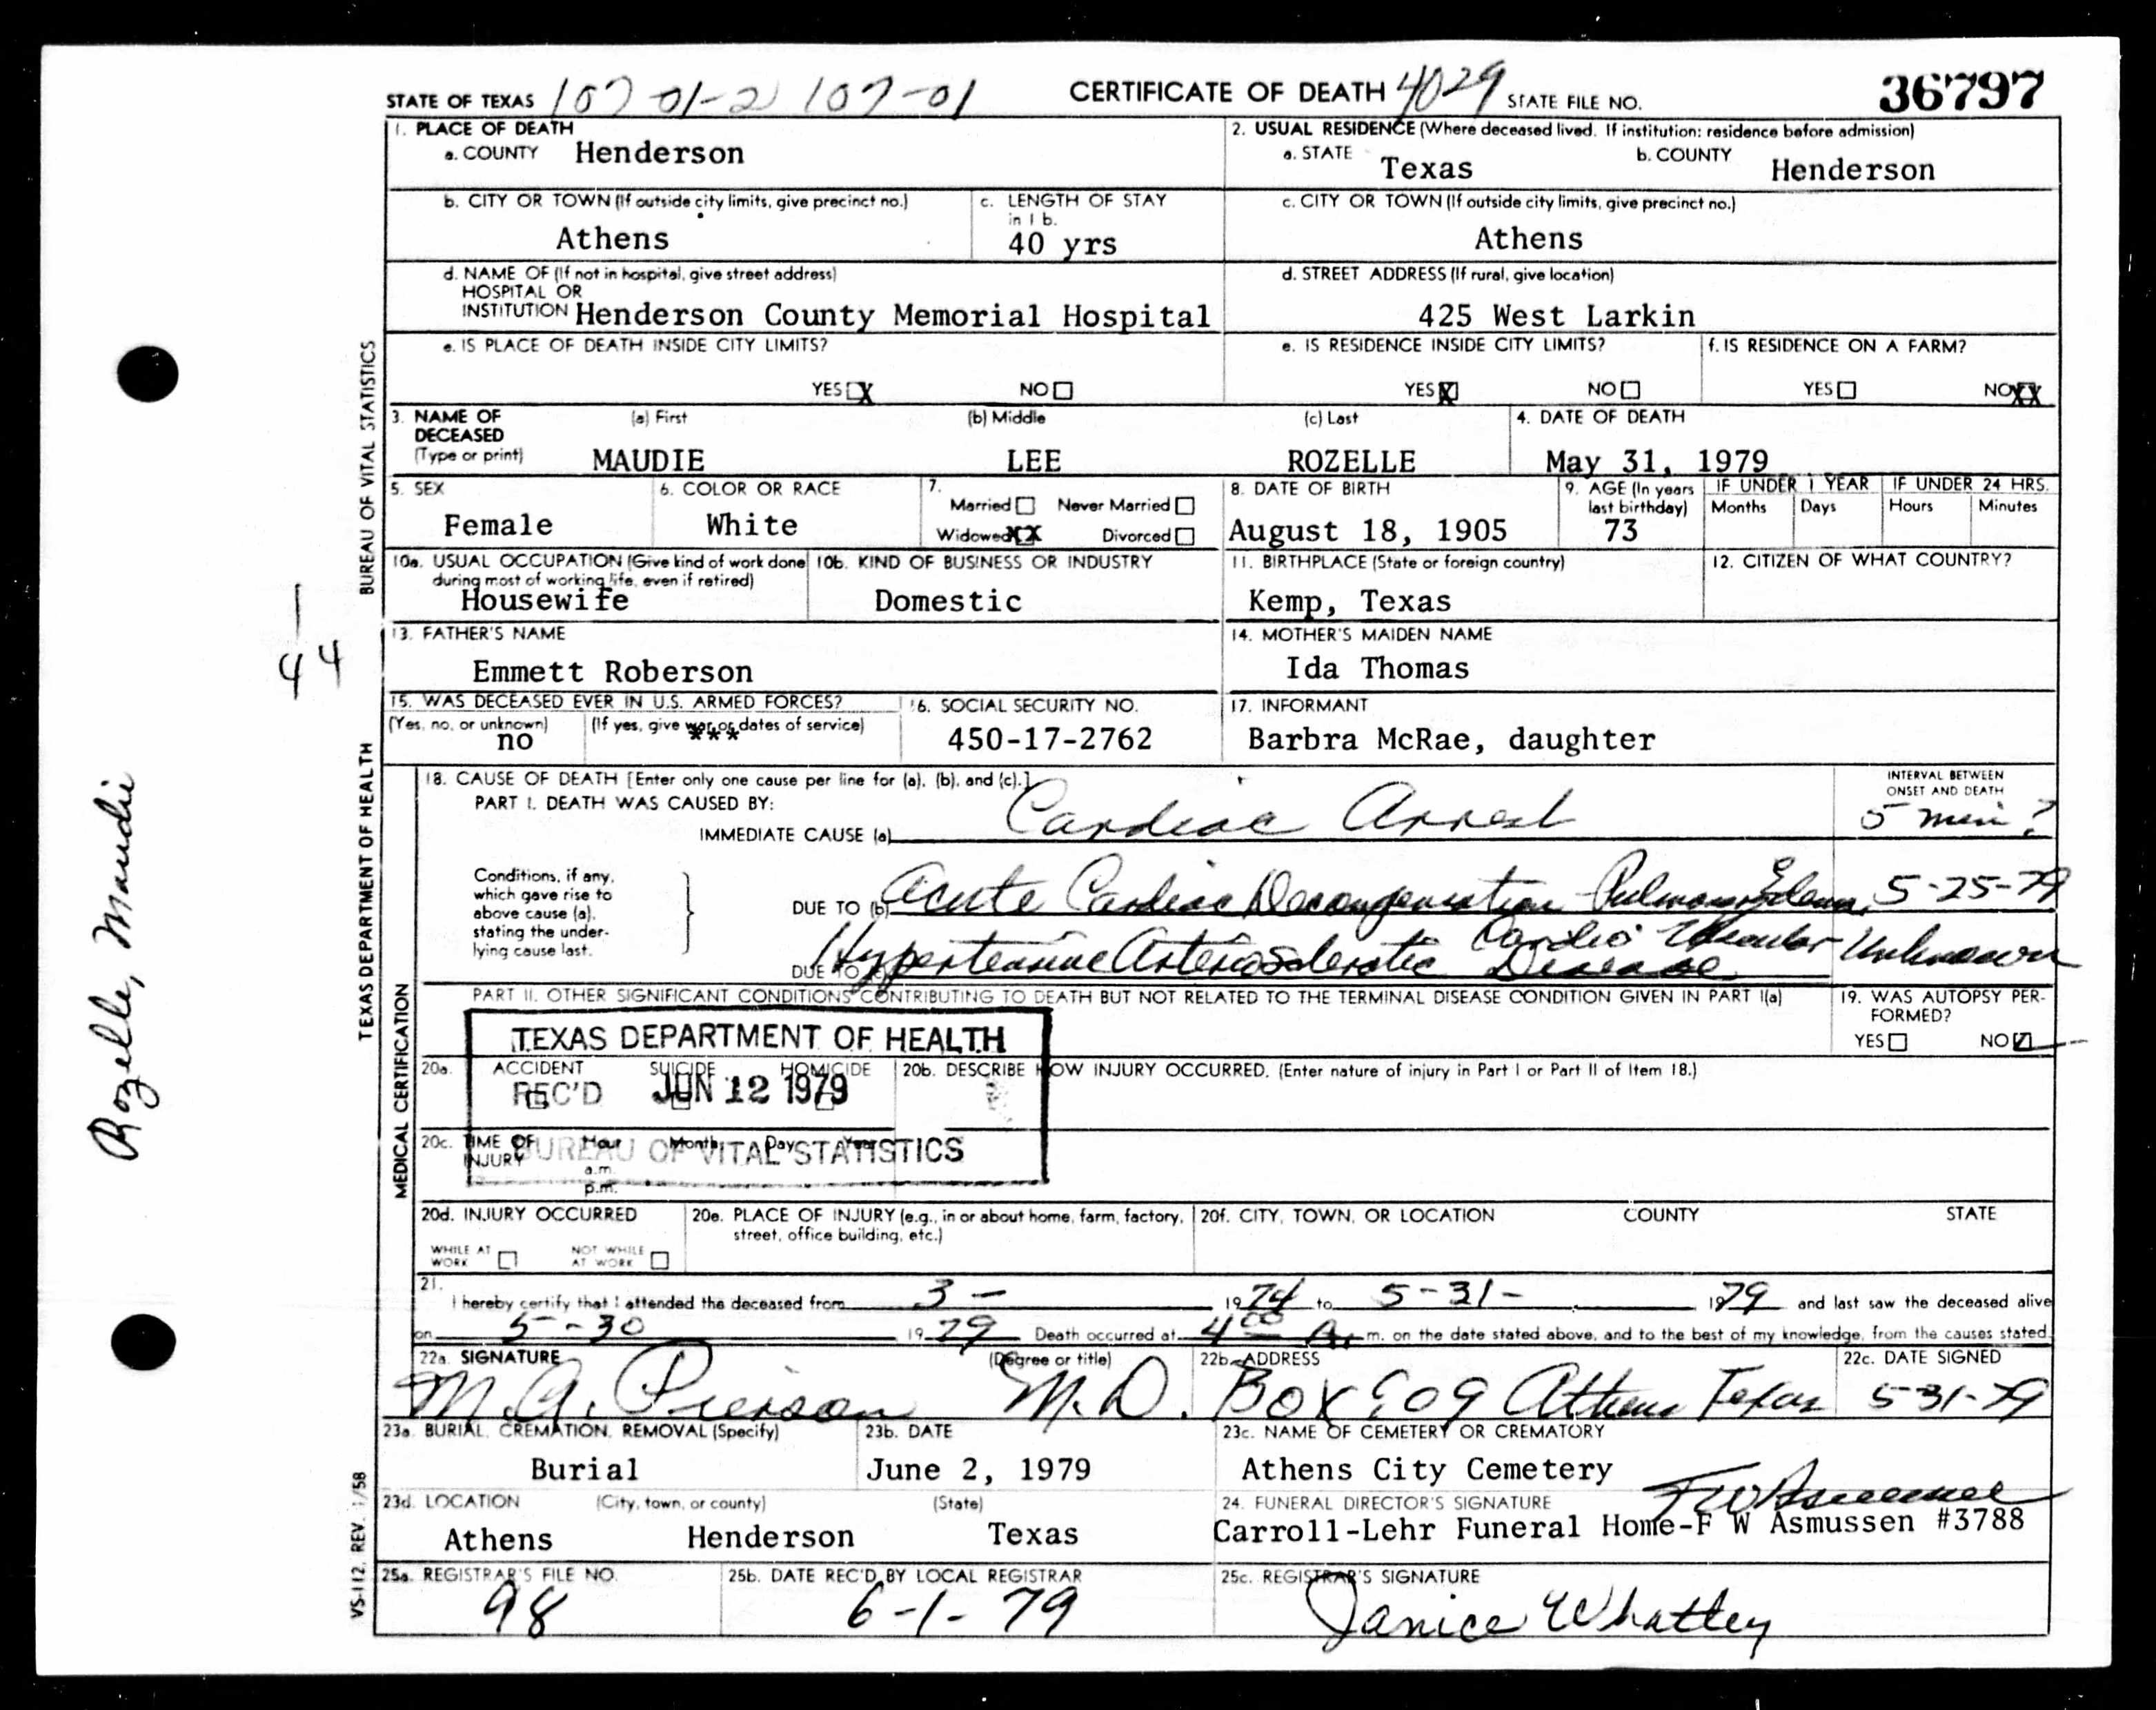 STATE OF TEXAS 107-01-2 107-01 CERTIFICATE OF DEATH 4029 STATE FILE NO. 36797
1. PLACE OF DEATH
a. COUNTY Henderson
2. USUAL RESIDENCE (Where deceased lived. If institution: residence before admission)
a. STATE Texas b. COUNTY Henderson
b. CITY OR TOWN (If outside city limits, give precinct no.)
Athens
c. LENGTH OF STAY
in 1 b.
40 yrs
c. CITY OR TOWN (If outside city limits, give precinct no.)
Athens
d. NAME OF (If not in hospital, give street address)
HOSPITAL OR
INSTITUTION Henderson County Memorial Hospital
d. STREET ADDRESS (If rural, give location)
425 West Larkin
e. IS PLACE OF DEATH INSIDE CITY LIMITS?
YES X NO
e. IS RESIDENCE INSIDE CITY LIMITS?
YES X NO
f. IS RESIDENCE ON A FARM?
YES NO XX
3. NAME OF
DECEASED
(Type or print)
(a) First (b) Middle (c) Last
MAUDIE LEE ROZELLE
4. DATE OF DEATH
May 31, 1979
5. SEX
Female
6. COLOR OR RACE
White
7.
Married Never Married
Widowed XX Divorced
8. DATE OF BIRTH
August 18, 1905
9. AGE (In years
last birthday)
73
IF UNDER 1 YEAR
Months Days
IF UNDER 24 HRS.
Hours Minutes
10a. USUAL OCCUPATION (Give kind of work done
during most of working life, even if retired)
Housewife
10b. KIND OF BUSINESS OR INDUSTRY
Domestic
11. BIRTHPLACE (State or foreign country)
Kemp, Texas
12. CITIZEN OF WHAT COUNTRY?
13. FATHER'S NAME
Emmett Roberson
14. MOTHER'S MAIDEN NAME
Ida Thomas
15. WAS DECEASED EVER IN U.S. ARMED FORCES?
(Yes, no, or unknown) (If yes, give war or dates of service)
no ***
16. SOCIAL SECURITY NO.
450-17-2762
17. INFORMANT
Barbra McRae, daughter
18. CAUSE OF DEATH [Enter only one cause per line for (a), (b), and (c).]
PART I. DEATH WAS CAUSED BY:
IMMEDIATE CAUSE (a) Cardiac Arrest
INTERVAL BETWEEN
ONSET AND DEATH
5 min?
Conditions, if any,
which gave rise to
above cause (a),
stating the under-
lying cause last.
DUE TO (b) Acute Cardiac Decompensation Pulmonary Edema 5-25-79
DUE TO (c) Hypertensive Arteriosclerotic Cardio Vascular Disease Unknown
PART II. OTHER SIGNIFICANT CONDITIONS CONTRIBUTING TO DEATH BUT NOT RELATED TO THE TERMINAL DISEASE CONDITION GIVEN IN PART I(a)
19. WAS AUTOPSY PER-
FORMED?
YES NO ✓
TEXAS DEPARTMENT OF HEALTH
REC'D JUN 12 1979
BUREAU OF VITAL STATISTICS
20a. ACCIDENT SUICIDE HOMICIDE
20b. DESCRIBE HOW INJURY OCCURRED. (Enter nature of injury in Part I or Part II of Item 18.)
20c. TIME OF INJURY Hour Month Day Year
a.m.
p.m.
20d. INJURY OCCURRED
WHILE AT WORK NOT WHILE AT WORK
20e. PLACE OF INJURY (e.g., in or about home, farm, factory,
street, office building, etc.)
20f. CITY, TOWN, OR LOCATION COUNTY STATE
21.
I hereby certify that I attended the deceased from 3- 1974 to 5-31- 1979 and last saw the deceased alive
on 5-30 1979 Death occurred at 4 00 A. m. on the date stated above, and to the best of my knowledge, from the causes stated.
22a. SIGNATURE (Degree or title)
M. A. Pierson M.D.
22b. ADDRESS
Box 909 Athens Texas
22c. DATE SIGNED
5-31-79
23a. BURIAL, CREMATION, REMOVAL (Specify)
Burial
23b. DATE
June 2, 1979
23c. NAME OF CEMETERY OR CREMATORY
Athens City Cemetery
23d. LOCATION (City, town, or county) (State)
Athens Henderson Texas
24. FUNERAL DIRECTOR'S SIGNATURE
F W Asmussen
Carroll-Lehr Funeral Home-F W Asmussen #3788
25a. REGISTRAR'S FILE NO.
98
25b. DATE REC'D BY LOCAL REGISTRAR
6-1-79
25c. REGISTRAR'S SIGNATURE
Janice Whatley
BUREAU OF VITAL STATISTICS
TEXAS DEPARTMENT OF HEALTH
MEDICAL CERTIFICATION
VS-112 REV. 1/58
44
Rozelle, Maudie